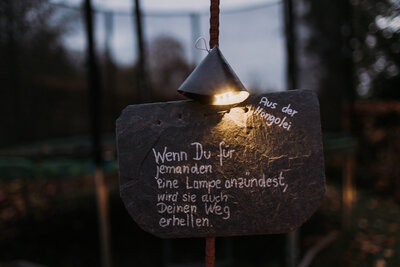 Aus der
Mongolei
Wenn Du für
jemanden
eine Lampe anzündest,
wird sie auch
Deinen Weg
erhellen.